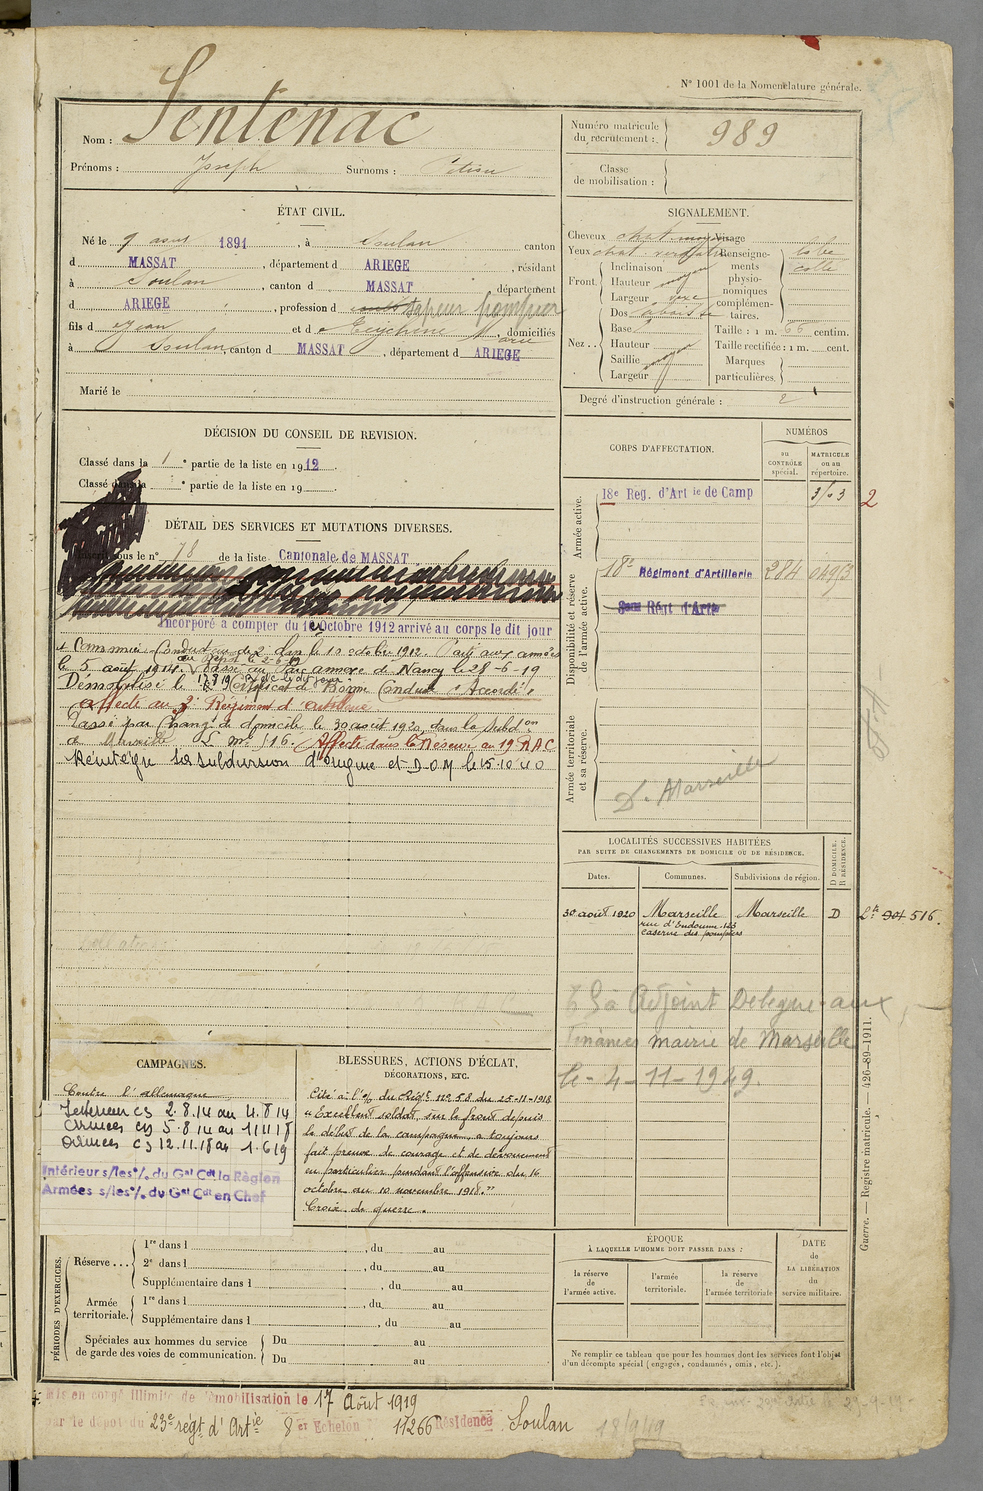 N° 1001 de la Nomenclature générale.
Nom : Sentenac
Prénoms : Joseph Surnoms :
Numéro matricule du recrutement : 989
Classe de mobilisation :
ÉTAT CIVIL.
Né le 9 aout 1891, à Soulan canton
d MASSAT, département d ARIEGE, résidant
à Soulan, canton d MASSAT département
d ARIEGE, profession d sapeur pompier
fils d Jean et d Eugénie Marie, domiciliés
à Soulan, canton d MASSAT, département d ARIEGE
Marié le
SIGNALEMENT.
Cheveux chat
Yeux chat
Visage
Front. Inclinaison moyen
Hauteur
Largeur
Nez.. Dos
Base
Hauteur
Saillie moyen
Largeur
Renseignements physionomiques complémentaires.
Taille : 1 m. 66 centim.
Taille rectifiée : 1 m. cent.
Marques particulières.
Degré d'instruction générale : 2
DÉCISION DU CONSEIL DE REVISION.
Classé dans la 1e partie de la liste en 1912.
Classé dans la e partie de la liste en 19
DÉTAIL DES SERVICES ET MUTATIONS DIVERSES.
Inscrit sous le n° 78 de la liste Cantonale de MASSAT
Incorporé à compter du 1er Octobre 1912 arrivé au corps le dit jour
et Commencé Conducteur de 2e classe le 10 octobre 1912. Parti aux armées
le 5 août 1914. Passé au Parc annexe de Nancy le 28-6-19
Démobilisé le 17 8 19 Certificat de Bonne Conduite "Accordé"
Affecté au 3e Régiment d'artillerie
Passé par Changt de domicile le 30 août 1920, dans la Subdon
de Marseille L mle 516. Affecté dans la Réserve au 19e RAC
Réintègre sa subdivision d'origine et D.O.M le 15.10.40
CORPS D'AFFECTATION.
NUMÉROS
au CONTRÔLE spécial.
MATRICULE ou au répertoire.
Armée active.
18e Reg. d'Art ie de Camp 2
Disponibilité et réserve de l'armée active.
18e Régiment d'Artillerie 284
Armée territoriale et sa réserve.
Dt Marseille
LOCALITÉS SUCCESSIVES HABITÉES
PAR SUITE DE CHANGEMENTS DE DOMICILE OU DE RÉSIDENCE.
Dates. Communes. Subdivisions de région. D DOMICILE. R RÉSIDENCE.
30 août 1920 Marseille Marseille D Lt 904 516.
rue d'Endoume 123
caserne des pompiers
Adjoint Délégué aux
Finances mairie de Marseille
le 4-11-1949.
CAMPAGNES.
Contre l'allemagne
Intérieur CS 2.8.14 au 4.8.14
Armées CS 5.8.14 au 11 11 18
Armées CS 12.11.18 au 1.6.19
Intérieur s/les o/. du Gal Cdt la Région
Armées s/les o/. du Gal Cdt en Chef
BLESSURES, ACTIONS D'ÉCLAT,
DÉCORATIONS, ETC.
Cité à l'o/ du Régt n° 58 du 25-11-1918
"Excellent soldat, sur le front depuis
le début de la campagne, a toujours
fait preuve de courage et de dévouement
en particulier pendant l'offensive du 16
octobre au 10 novembre 1918."
Croix de guerre.
PÉRIODES D'EXERCICES.
Réserve... 1re dans l , du au
2e dans l , du au
Supplémentaire dans l , du au
Armée territoriale. 1re dans l , du au
Supplémentaire dans l , du au
Spéciales aux hommes du service de garde des voies de communication. Du au
Du au
ÉPOQUE
À LAQUELLE L'HOMME DOIT PASSER DANS :
la réserve de l'armée active.
l'armée territoriale.
la réserve de l'armée territoriale
DATE de LA LIBÉRATION du service militaire.
Ne remplir ce tableau que pour les hommes dont les services font l'objet
d'un décompte spécial (engagés, condamnés, omis, etc.).
Guerre. — Registre matricule. — 426-89-1911.
Mis en congé illimité de démobilisation le 17 Août 1919
par le dépôt du 23e regt d'Artie 8er Echelon 11266 Résidence Soulan 18/9/19